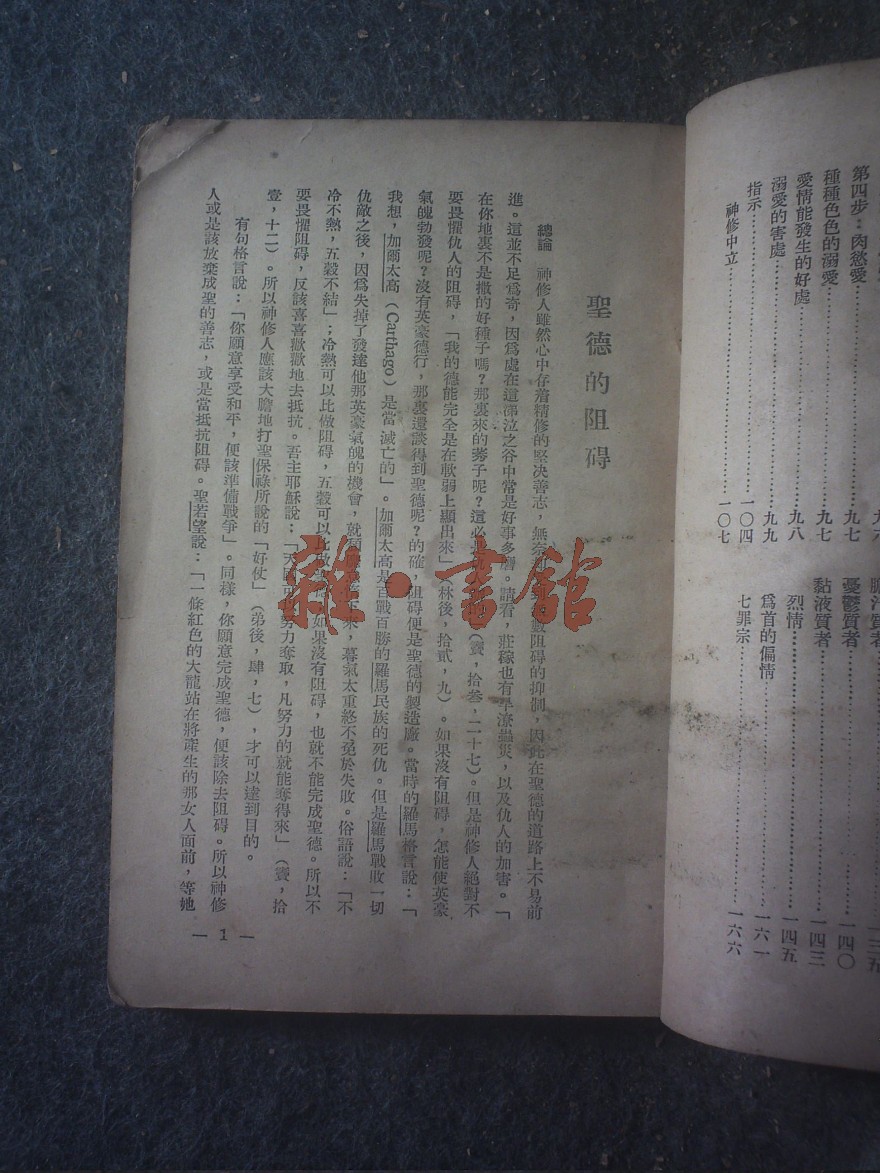 第四步：肉慾愛
種種色色的溺愛……九七
愛情能發生的好處……九七
溺愛的害處……九八
指示……九九
神修中立……一〇四
一〇七
膽汁質者……一三五
憂鬱質者……一四〇
黏液質者……一四三
烈情……一四五
爲首的偏情……一六一
七罪宗……一六六
聖德的阻碍
總論　神修人雖然心中存着精修的堅决善志，無奈阻碍的抑制，因此在聖德的道路上不易前
進。這並不足爲奇，因爲處在這涕泣之谷中常是好事多磨。請看，莊稼也有旱潦蟲災，以及仇人的加害。「
在你地裏不是撒的好種子嗎？那裏來的莠子呢？這必是（竇，拾叁，二十七）。但是神修人絕對不
要畏懼仇人的阻碍，「我的德能完全是在軟弱上顯出來」林後，拾貳，九）。如果沒有阻碍，怎能使英豪
氣魄勃發呢？沒有英豪德行，那裏還談得到聖德呢？的確，阻碍便是聖德的製造廠。當時的羅馬格言說：「
我想，加爾太高（Carthago）是當滅亡的」。加爾太高是百戰百勝的羅馬民族的死仇。但是羅馬戰敗一切
仇敵之後，因爲失掉了發達他那英豪氣魄的機會，就來，暮氣太重終不免於失敗。俗語說：「不
冷不熱，五穀不結」；冷熱可以比做阻碍，五穀可以比做如果沒有阻碍，也就不能完成聖德。所以不
要畏懼阻碍，反該喜喜歡歡地去抵抗。吾主耶穌說：「天國可以努力奪取，凡努力的就能奪得來」（竇，拾
壹，十二）。所以神修人應該大膽地打聖保祿所說的「好仗」（弟後，肆，七），才可以達到目的。
有句格言說：「你願意享受和平，便該準備戰爭」。同樣，你願意完成聖德，便該除去阻碍。所以神修
人或是該放棄成聖的善志，或是當抵抗阻碍。聖若望說：「一條紅色的大龍站在將產生的那女人面前，等她
— 1 —
雜·書館